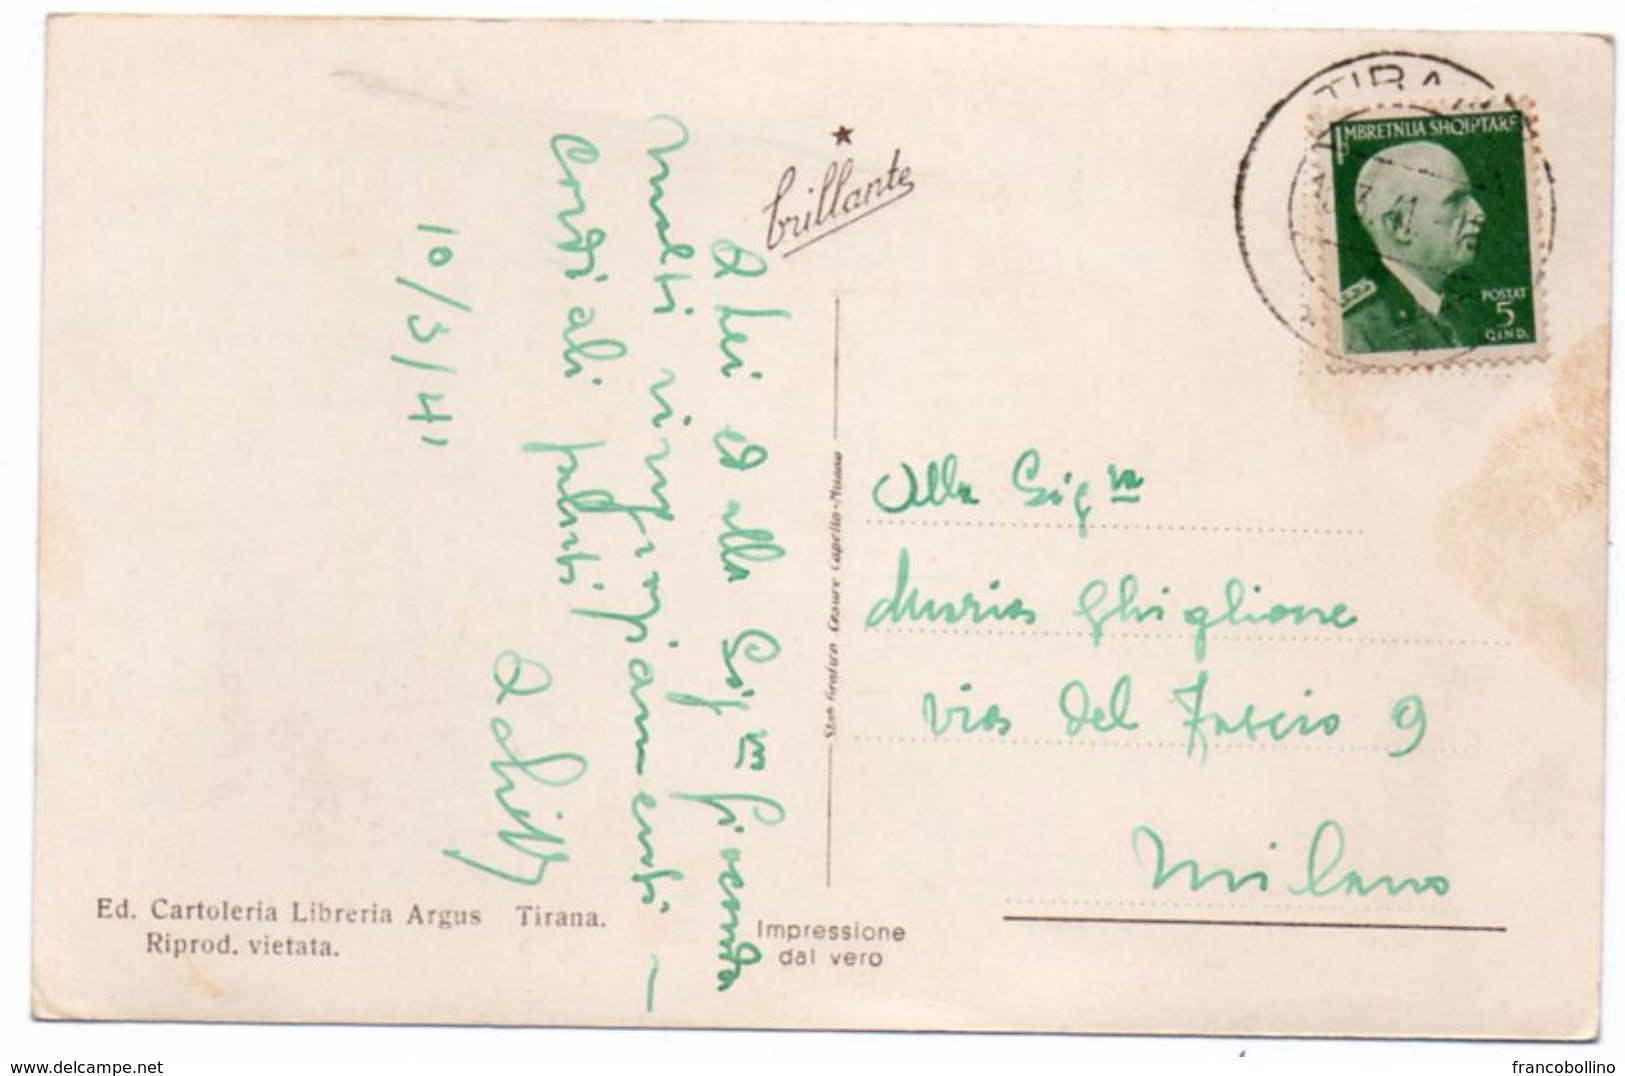 ★
brillante
A Lei ed alla Sig.ra Gioconda
molti ringraziamenti —
Cordiali saluti
10/3/41
TIRA
MBRETNIJA SHQIPTARE
POSTAT
5
QIND.
Alla Sigra
Maria Ghiglione
via del Fascio 9
Milano
Stab Grafico Cesare Capello-Milano
Ed. Cartoleria Libreria Argus Tirana.
Riprod. vietata.
Impressione
dal vero
delcampe.net
francobollino